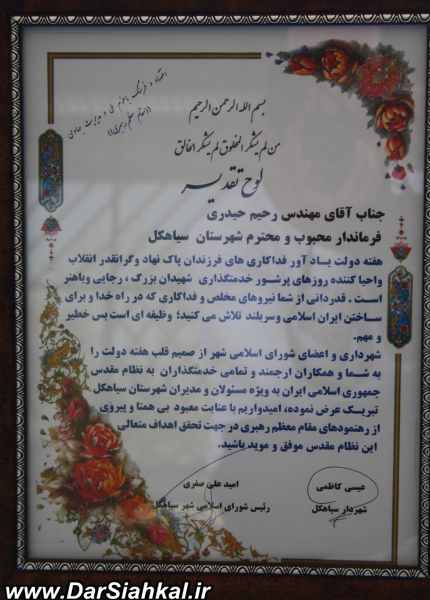 اقتصاد و فرهنگ با عزم ملی و مدیریت جهادی
(مقام معظم رهبری)
بسم الله الرحمن الرحیم
من لم یشکر المخلوق لم یشکر الخالق
لوح تقدیر
جناب آقای مهندس رحیم حیدری
فرماندار محبوب و محترم شهرستان سیاهکل
هفته دولت یاد آور فداکاری های فرزندان پاک نهاد وگرانقدر انقلاب
واحیا کننده روزهای پرشور خدمتگذاری شهیدان بزرگ ، رجایی وباهنر
است . قدردانی از شما نیروهای مخلص و فداکاری که در راه خدا و برای
ساختن ایران اسلامی وسربلند تلاش می کنید؛ وظیفه ای است بس خطیر
و مهم.
شهرداری و اعضای شورای اسلامی شهر از صمیم قلب هفته دولت را
به شما و همکاران ارجمند و تمامی خدمتگذاران به نظام مقدس
جمهوری اسلامی ایران به ویژه مسئولان و مدیران شهرستان سیاهکل
تبریک عرض نموده، امیدواریم با عنایت معبود بی همتا و پیروی
از رهنمودهای مقام معظم رهبری در جهت تحقق اهداف متعالی
این نظام مقدس موفق و موید باشید.
عیسی کاظمی
شهردار سیاهکل
امید علی صفری
رئیس شورای اسلامی شهر سیاهکل
www.DarSiahkal.ir